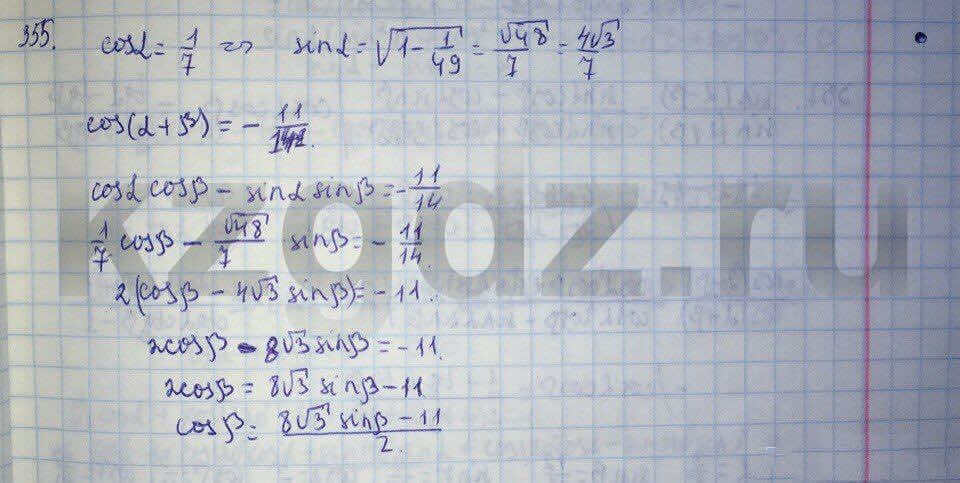 355. cosα = 1/7 => sinα = √(1 - 1/49) = √48/7 = 4√3/7
cos(α+β) = - 11/14.
cosα cosβ - sinα sinβ = - 11/14
1/7 cosβ - √48/7 sinβ = - 11/14.
2(cosβ - 4√3 sinβ) = -11.
2cosβ - 8√3 sinβ = -11.
2cosβ = 8√3 sinβ - 11
cosβ = (8√3 sinβ - 11)/2.
kzgdz.ru